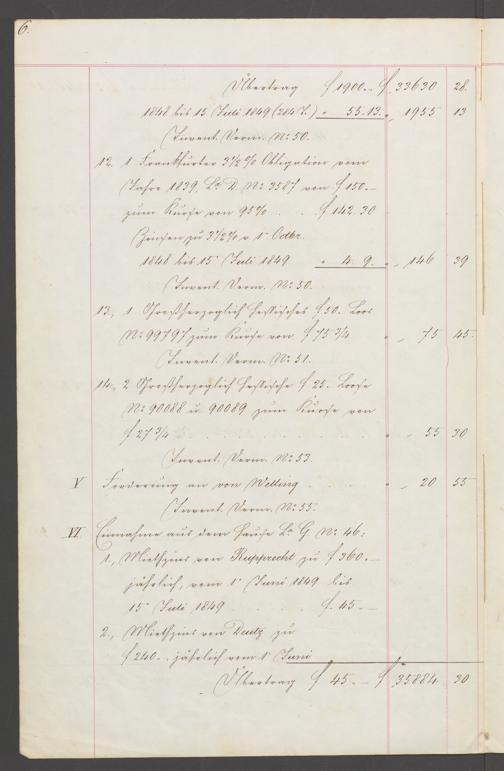 6.
Übertrag f 1900.– f 33630 28.
1848 bis 15 Juli 1849 (284 T.) „ 55.13. „ 1955 13
(Invent. Verm. No: 50.
12. 1 Frankfurter 3½% Obligation vom
Jahre 1839, Lr D. No: 3587 von f 150.–
zum Kurse von 95% . . f 142.30
Zinsen zu 3½% v. 1 Octbr.
1848 bis 15 Juli 1849 „ 4. 9. „ 146 39
(Invent. Verm. No: 50.
13., 1 Großherzoglich Hessisches f 50. Loos
No: 99797 zum Kurse von f 75 3/4 „ 75 45.
(Invent. Verm. No: 51.
14., 2 Großherzoglich Hessische f 25. Loose
No: 90088 u. 90089 zum Kurse von
f 27 3/4 . . . . „ 55 30
(Invent. Verm. No: 53.
V Forderung an von Welling . . . „ 20 55
(Invent. Verm. No: 55.
VI Einnahme aus dem Hause Lr G. No: 46:
1., Miethzins von Rupprecht zu f 360.–
jährlich, vom 1 Juni 1849 bis
15 Juli 1849 . . . . f. 45.–
2., Miethzins von Deutz zu
f 240.–, jährlich vom 1 Juni
Übertrag f 45.– f 35884 30